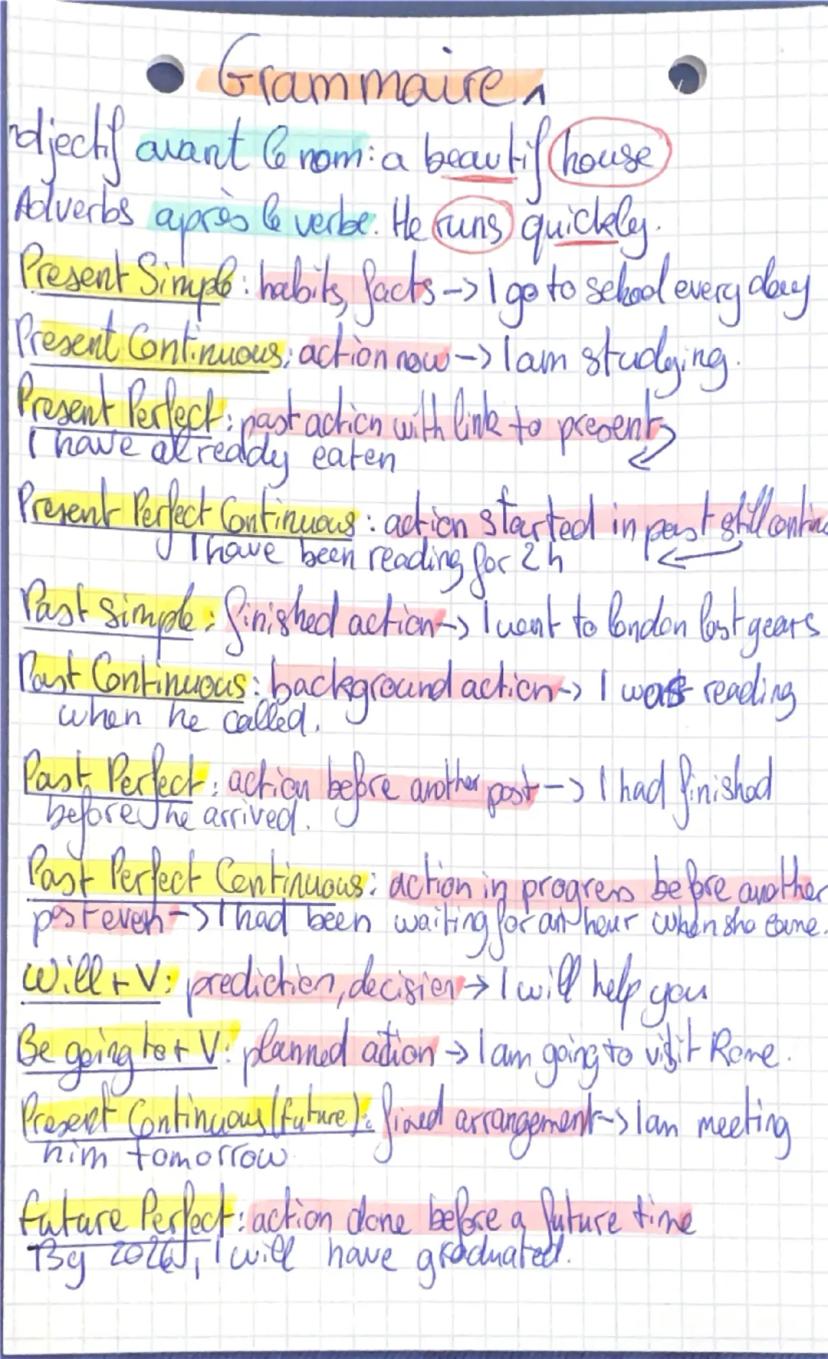 Grammaire
djectif avant le nom: a beautif house
Adverbs après le verbe. He runs quickly.
Present Simple: habits, facts -> I go to school every day
Present Continuous: action now -> I am studying.
Present Perfect: past action with link to present
I have already eaten
Present Perfect Continuous: action started in past still continu
I have been reading for 2h
Past simple: finished action -> I went to london last years
Past Continuous: background action -> I was reading
when he called.
Past Perfect: action before another past -> I had finished
before he arrived.
Past Perfect Continuous: action in progress before another
past even -> I had been waiting for an hour when she came.
Will + V: prediction, decision -> I will help you
Be going to + V: planned action -> I am going to visit Rome.
Present Continuous (future): fixed arrangement -> I am meeting
him tomorrow
Future Perfect: action done before a future time
By 2026, I will have graduated.